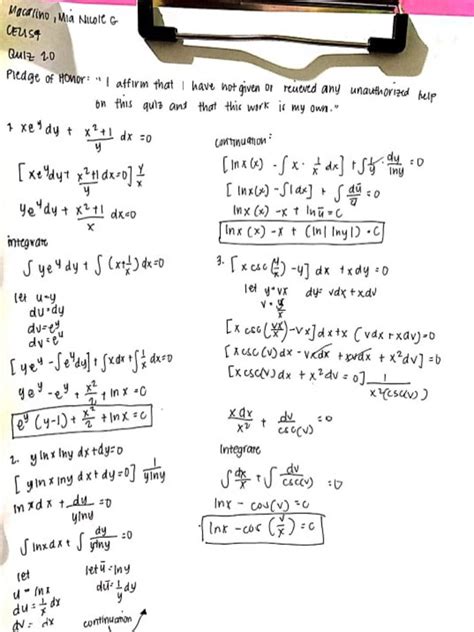 Macalino, Mia Nicole G
CE11S4
Quiz 2.0
Pledge of Honor: " I affirm that I have not given or recieved any unauthorized help
on this quiz and that this work is my own."
1. xe^y dy + (x²+1)/y dx = 0
[xe^y dy + (x²+1)/y dx = 0] y/x
ye^y dy + (x²+1)/x dx = 0
integrate
∫ ye^y dy + ∫ (x + 1/x) dx = 0
let u = y
du = dy
dv = e^y
dv = e^y
[ye^y - ∫e^y dy] + ∫x dx + ∫1/x dx = 0
ye^y - e^y + x²/2 + ln x = C
e^y (y-1) + x²/2 + ln x = C
2. y lnx lny dx + dy = 0
[y lnx lny dx + dy = 0] 1/(y lny)
ln x dx + dy/(y lny) = 0
∫ lnx dx + ∫ dy/(y lny) = 0
let
u = lnx
du = 1/x dx
dv = dx
let ū = lny
dū = 1/y dy
continuation
continuation:
[lnx(x) - ∫ x · 1/x dx] + ∫ 1/y · dy/lny = 0
[lnx(x) - ∫1dx] + ∫ dū/ū = 0
lnx(x) - x + ln ū = C
lnx(x) - x + (ln| lny|) = C
3. [x csc(y/x) - y] dx + x dy = 0
let y = vx dy = vdx + xdv
v = y/x
[x csc(vx/x) - vx] dx + x (vdx + xdv) = 0
[x csc(v) dx - vxdx + xvdx + x²dv] = 0
[x csc(v) dx + x²dv = 0] 1/(x²(csc(v))
x dx/x² + dv/csc(v) = 0
Integrate
∫ dx/x + ∫ dv/csc(v) = 0
lnx - cos(v) = C
lnx - cos(y/x) = C